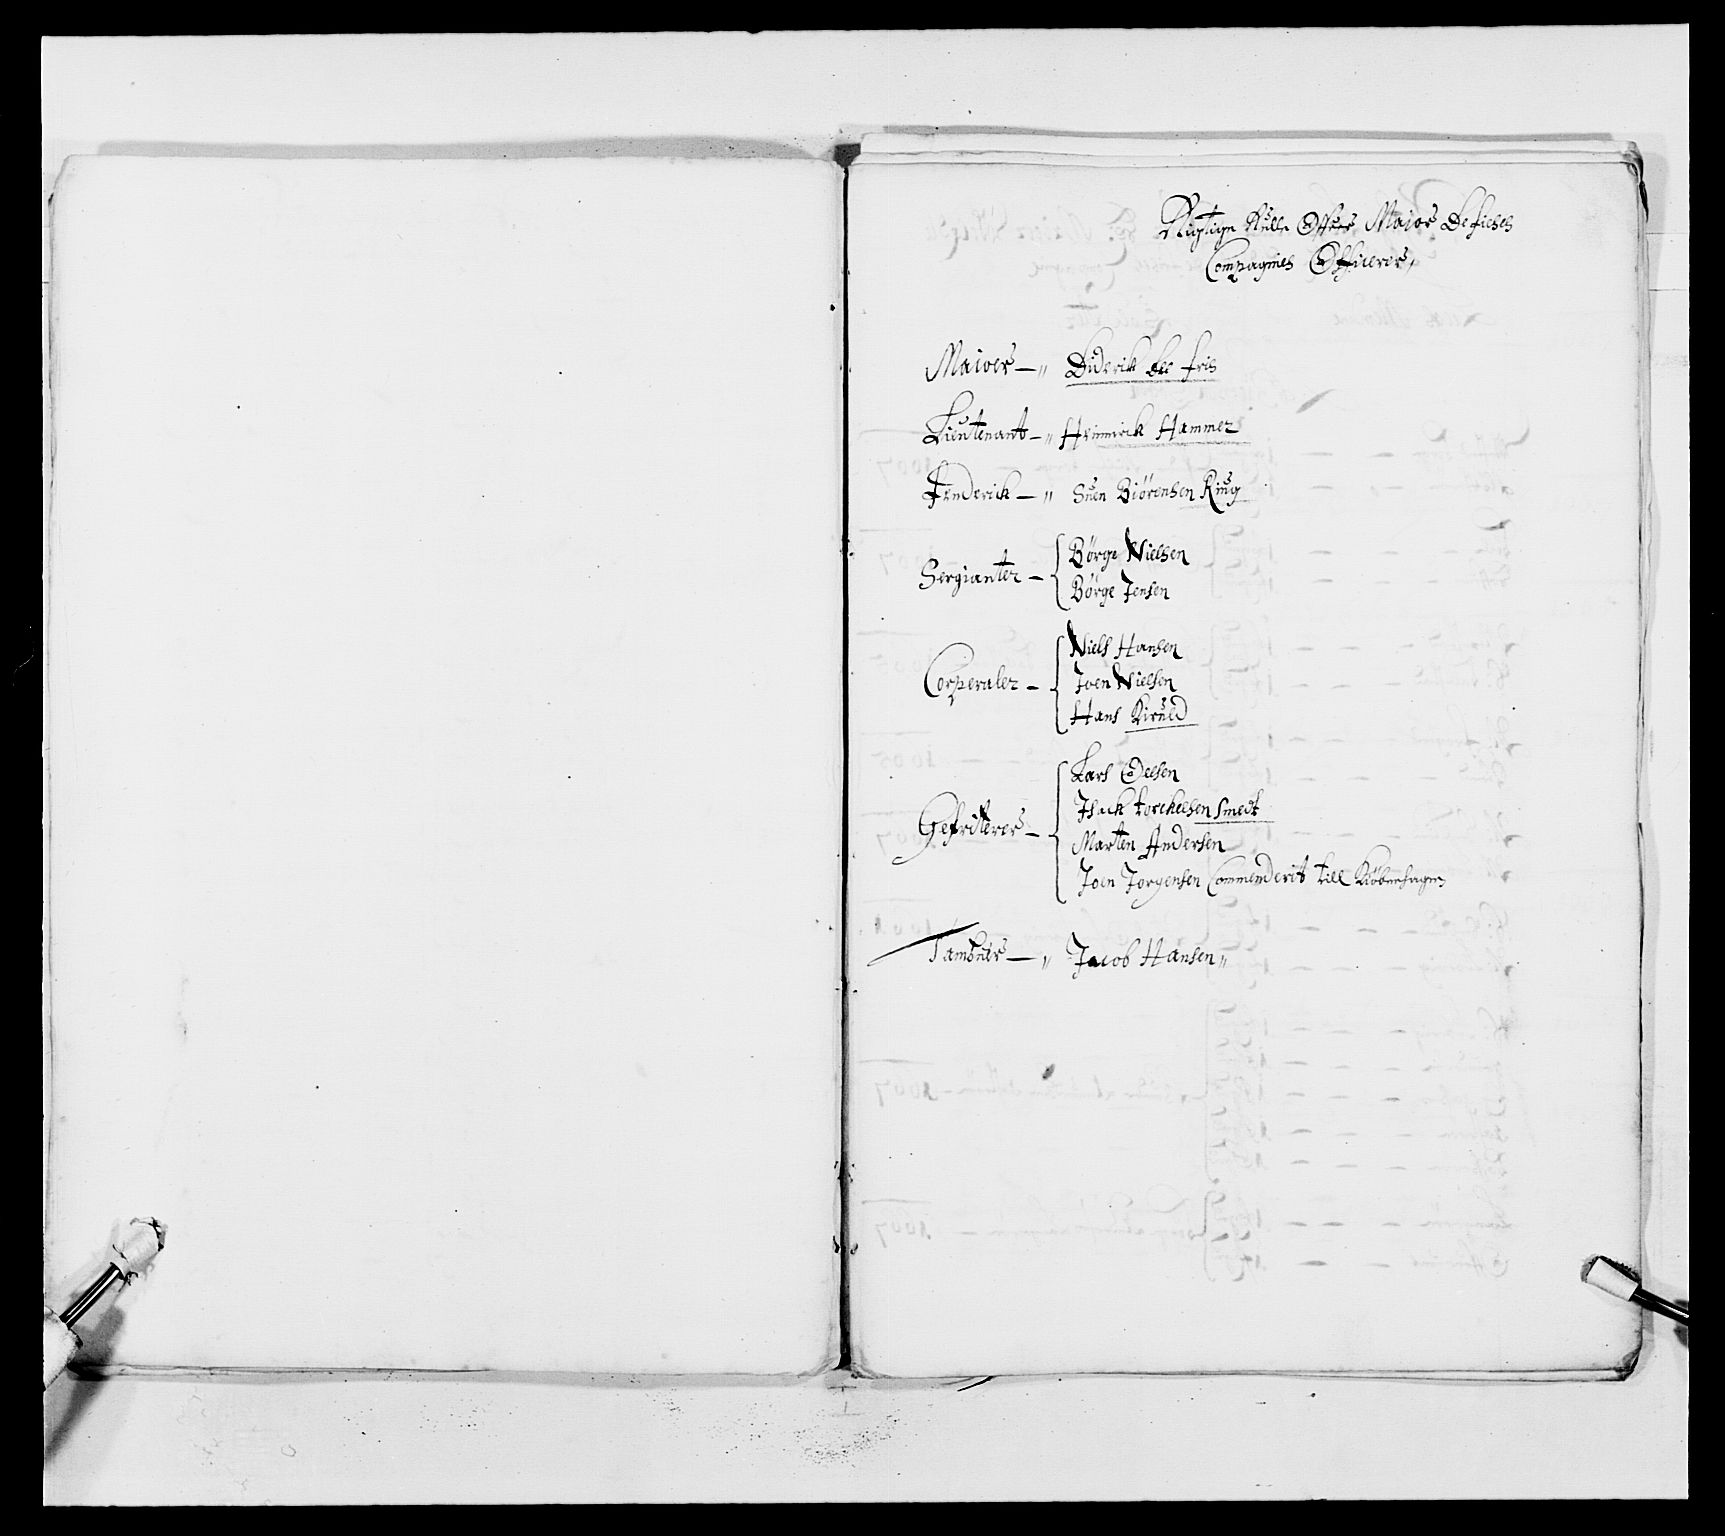 Rigtige Rulle Ofuer Maior Defises
Compagnies Officerer,
Maioer — " Diderik dee fris
Lieutenant — " Heinnrick Hammer
Fenderick — " Suen Biörensen Ring
Sergianter — Börge Nielsen
Börge Jensen
Corperaler — Niels Hansen
Joen Nielsen
Hans Kiruld
Gefriterer — Lars Oelsen
Isack torckelsen smedt
Marten Andersen
Joen Jörgensen Commenderit till Kiöbenhagen
Tambuer — " Jacob Hansen "